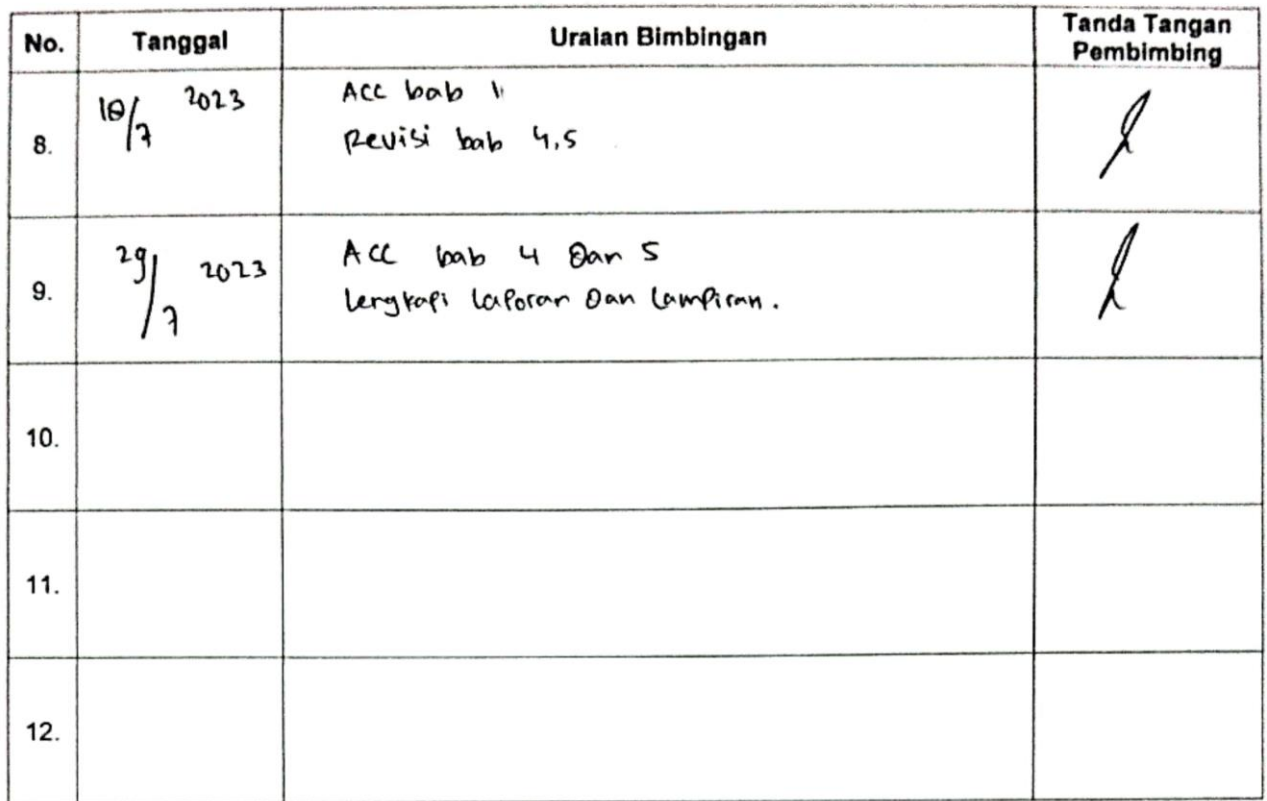 No. Tanggal Uraian Bimbingan Tanda Tangan
Pembimbing
8. 18/7 2023 Acc bab 1
Revisi bab 4,5
9. 29/7 2023 Acc bab 4 Dan 5
lengkapi laporan Dan lampiran.
10.
11.
12.